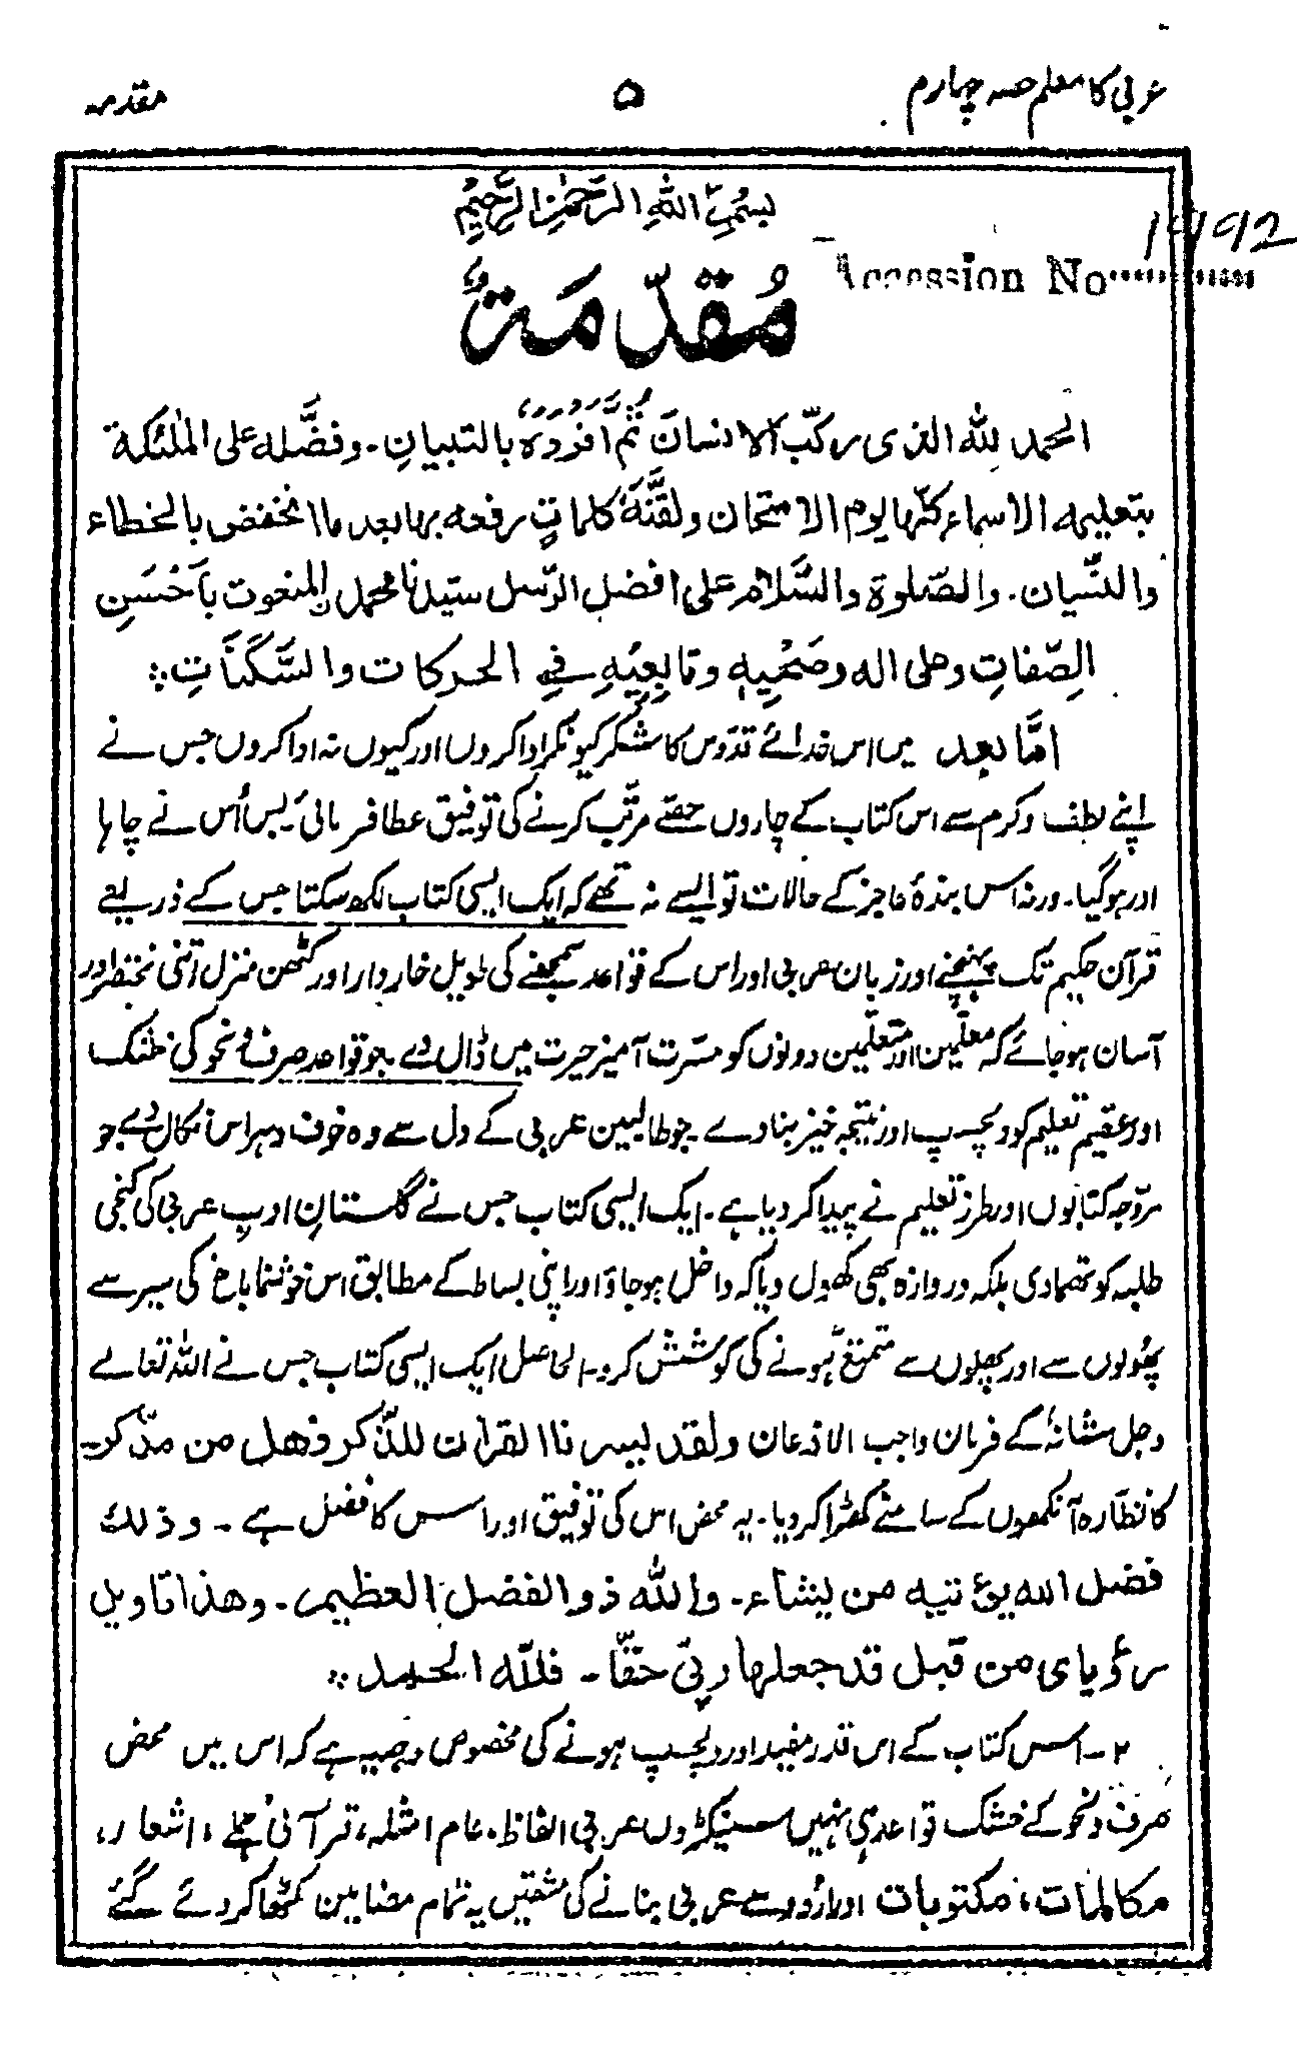 عربی کا معلم حصہ چہارم ۵ مقدمہ
بِسْمِ اللهِ الرَّحْمٰنِ الرَّحِيْمِ
Accession No. 14192
مُقَدِّمَةٌ
الحمد للہ الذی رکّب الانسانَ ثم افردہ بالتبیانِ۔ وفضَّلہ علی الملٰئکۃ
بتعلیمہ الاسماء کلّہا یوم الامتحان ولقَّنَہٗ کلماتٍ رفعہ بہا بعد ما انخفض بالخطاء
والنّسیان۔ والصّلوۃ والسَّلام علی افضل الرّسل سیّدنا محمد المنعوت بِاَحْسَنِ
الصِّفاتِ وعلی الہ وصَحْبِہٖ وتابِعِیْہِ فِی الحرکات والسَّکَنَاتِ ۞
امّا بعد میں اس خدائے قدّوس کا شکر کیونکر ادا کروں اور کیوں نہ ادا کروں جس نے
اپنے لطف و کرم سے اس کتاب کے چاروں حصّے مرتّب کرنے کی توفیق عطا فرمائی۔ بس اُس نے چاہا
اور ہو گیا۔ ورنہ اس بندۂ عاجز کے حالات تو ایسے نہ تھے کہ ایک ایسی کتاب لکھ سکتا جس کے ذریعے
قرآن حکیم تک پہنچنے اور زبان عربی اور اس کے قواعد سمجھنے کی طویل خاردار اور کٹھن منزل اتنی مختصر اور
آسان ہو جائے کہ معلّمین اور متعلّمین دونوں کو مسرّت آمیز حیرت میں ڈال دے جو قواعد صرف و نحو کی خشک
اور عقیم تعلیم کو دلچسپ اور نتیجہ خیز بنا دے۔ جو طالبین عربی کے دل سے وہ خوف و ہراس نکال دے جو
مروّجہ کتابوں اور طرز تعلیم نے پیدا کر دیا ہے۔ ایک ایسی کتاب جس نے گلستانِ ادبِ عربی کی کنجی
طلبہ کو تھما دی بلکہ دروازہ بھی کھول دیا کہ داخل ہو جاؤ اور اپنی بساط کے مطابق اس خوشنما باغ کی سیر سے
پھُولوں سے اور پھلوں سے متمتع ہونے کی کوشش کرو۔ الحاصل ایک ایسی کتاب جس نے اللہ تعالے
وجل شانہٗ کے فرمان واجب الاذعان ولقد یسرنا القراٰن للذّکر فھل من مدّکر۔
کا نظّارہ آنکھوں کے سامنے کھڑا کر دیا۔ یہ محض اس کی توفیق اور اس کا فضل ہے۔ وذلک
فضل اللہ یؤتیہ من یشاء۔ واللہ ذو الفضل العظیم۔ وھذا تاویل
رءُیای من قبل قد جعلہا ربّی حقّا۔ فللّٰہ الحمد ۞
۲۔ اس کتاب کے اس قدر مفید اور دلچسپ ہونے کی مخصوص وجہ یہ ہے کہ اس میں محض
صرف و نحو کے خشک قواعد ہی نہیں سینکڑوں عربی الفاظ، عام امثلہ، قرآنی جملے، اشعار،
مکالمات، مکتوبات اور اُردو سے عربی بنانے کی مشقیں یہ تمام مضامین کٹھا کر دئے گئے